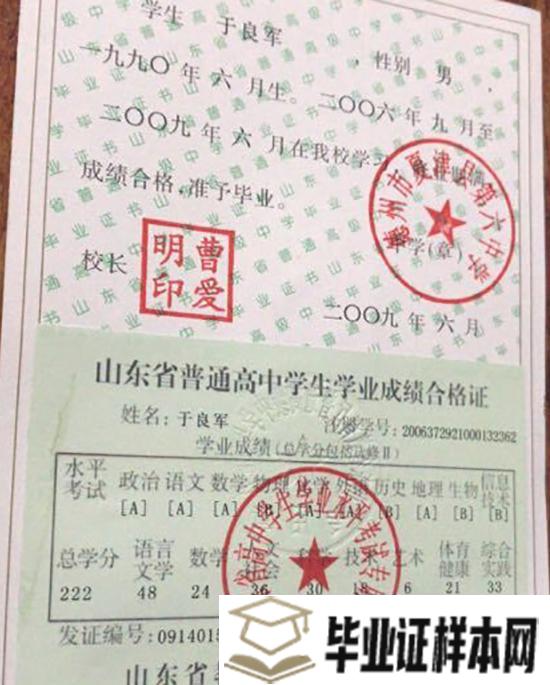 学生 于良军 , 性别 男 ,
一九九〇 年 六 月生。二〇〇六 年 九 月至
二〇〇九 年 六 月在我校学
成绩合格,准予毕业。
德州市夏津县第六中学
中学(章)
校长
曹爱明印
二〇〇九 年 六 月
山东省普通高中学生学业成绩合格证
姓名:于良军 注册学号:2006372921000132362
学业成绩(总学分包括选修Ⅱ)
水平考试 政治 语文 数学 物理 化学 外语 历史 地理 生物 信息技术
[A] [A] [A] [B] [B] [A] [B]
总学分 语言文学 数学 技术 艺术 体育健康 综合实践
222 48 24 36 30 18 6 21 33
发证编号:0914015
山东省
毕业证样本网